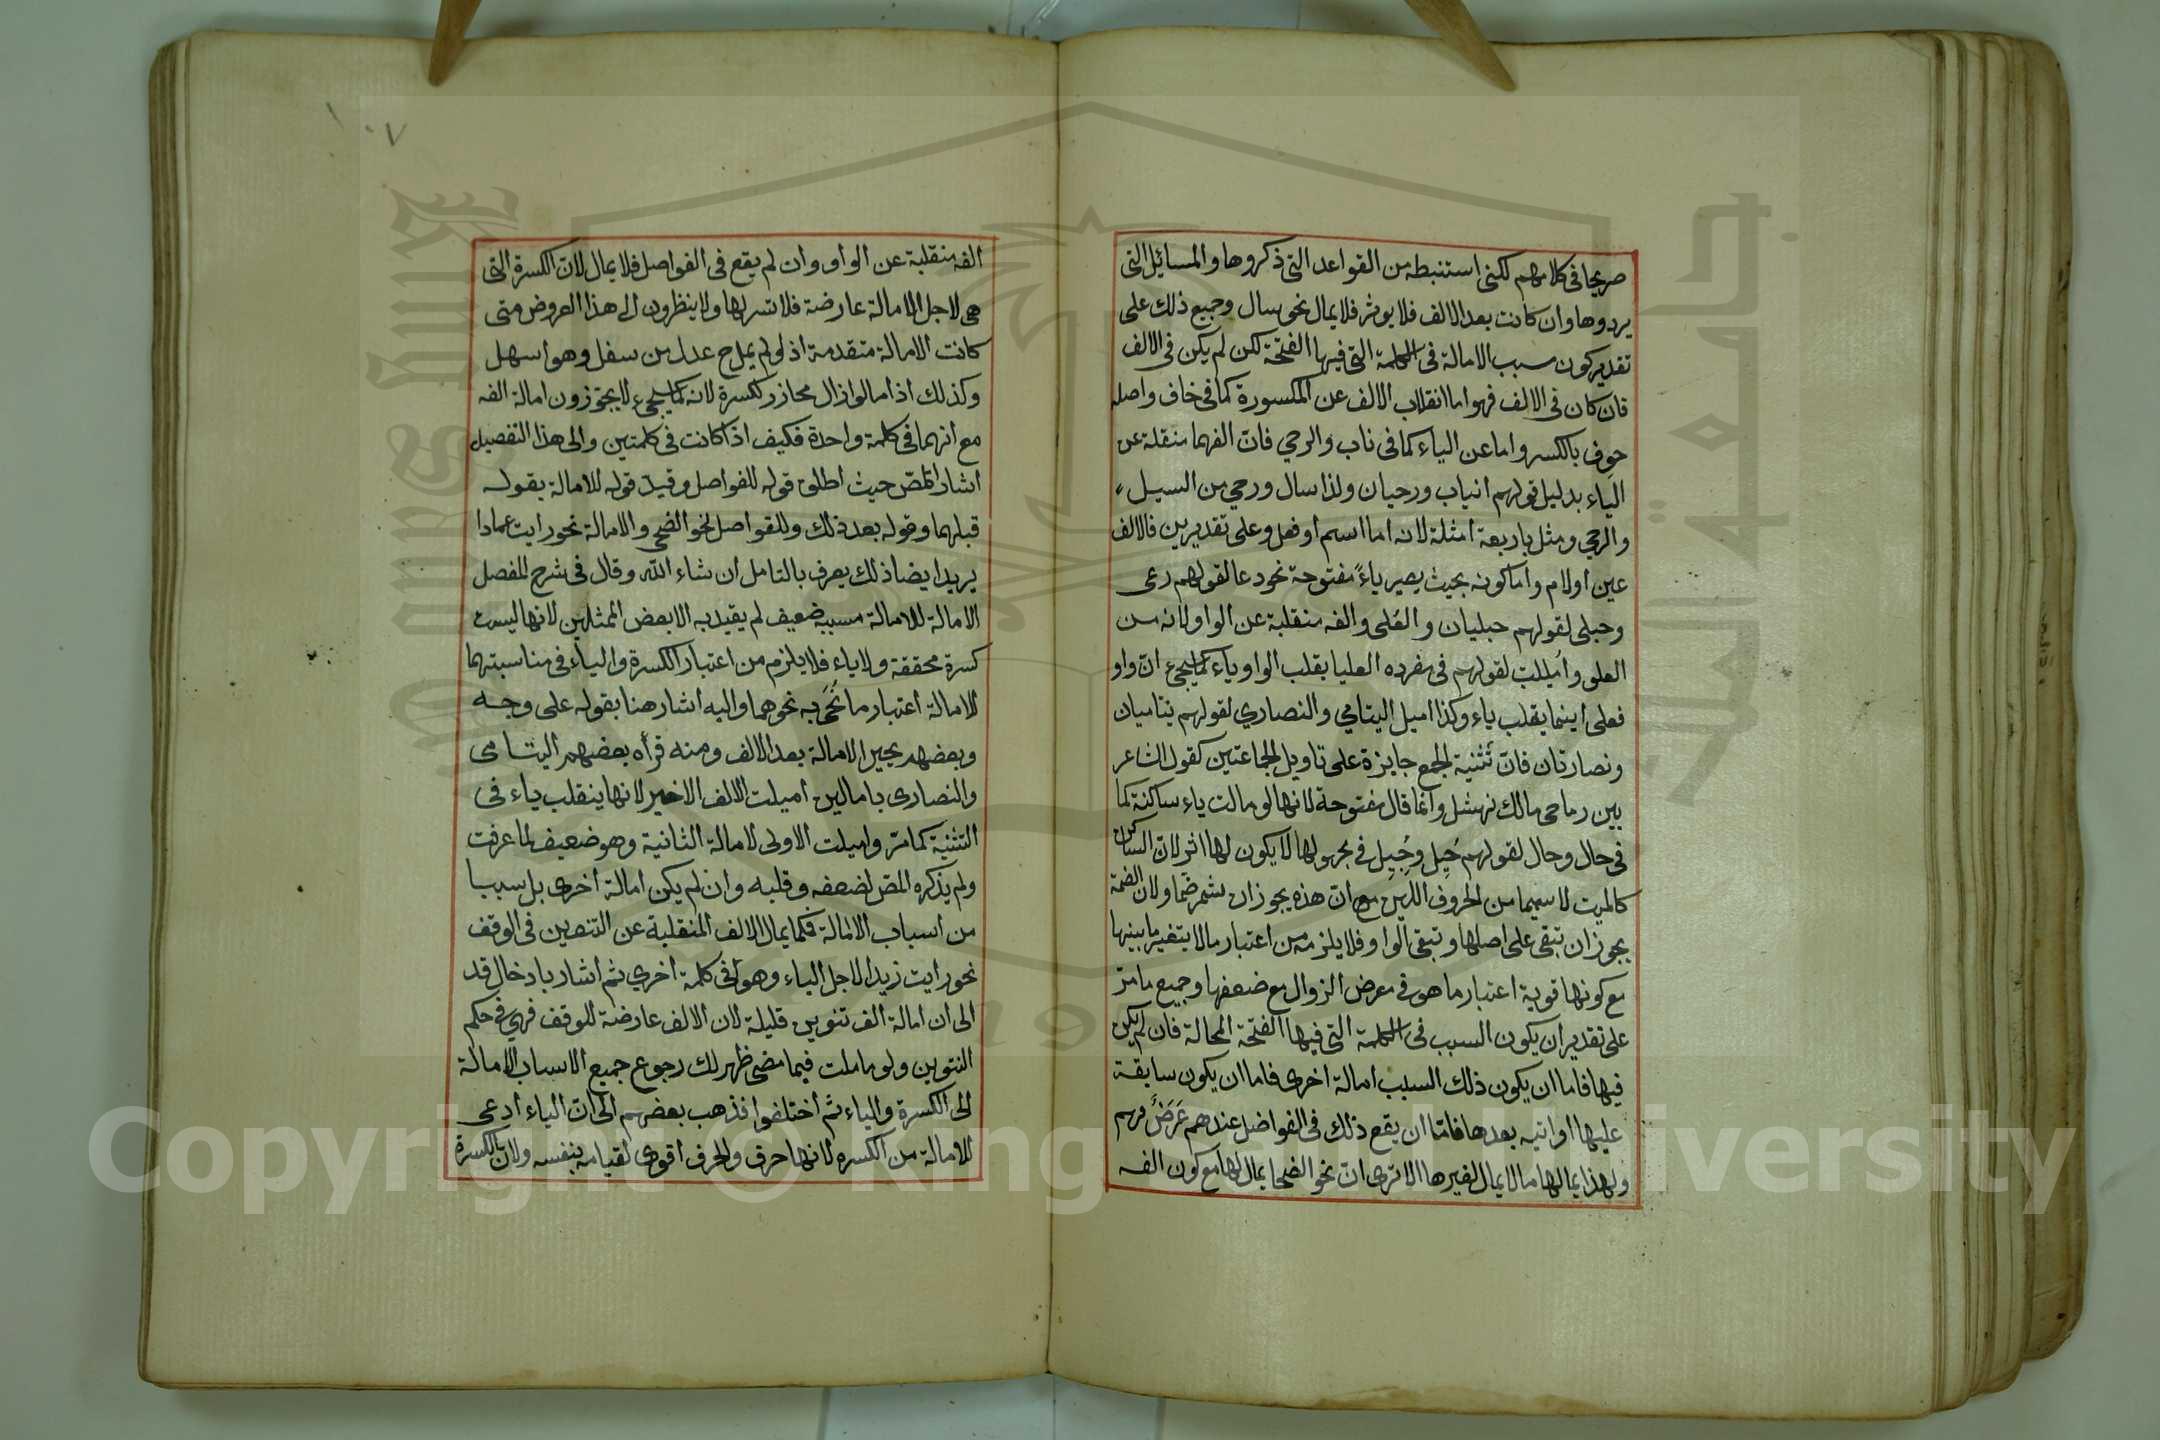 صريحا في كلامهم لكني استنبطه من القواعد التي ذكروها والمسائل التي
يردوها وان كانت بعد الالف فلا يوثر فلا يمال نحو سال وجميع ذلك على
تقدير كون سبب الامالة في الكلمة التي فيها الفتحة لكن لم يكن في الالف
فان كان في الالف فهو اما انقلاب الالف عن المكسورة كما في خاف واصله
خوف بالكسر واما عن الياء كما في ناب والرحي فان الفهما منقلة عن
الياء بدليل قولهم انياب ورحيان ولذا سال ورمي من السيل
والرمي ومثل باربعة امثلة لانه اما اسم او فعل وعلى تقديرين فالالف
عين او لام واما كونه بحيث يصير ياءً مفتوحة نحو دعا لقولهم دعى
وحبلى لقولهم حبليان والعُلى والفه منقلبة عن الواو لانه من
العلو واُميلت لقولهم في مفرده العليا بقلب الواو ياء كما يجيء ان واو
فعلى اينما يقلب ياء وكذا اميل اليتامي والنصاري لقولهم يتاميان
ونصارتان فانّ تثنية الجمع جايزة على تاويل الجماعتين كقول الشاعر
بين رماحي مالك نهشل وانما قال مفتوحة لانها لو مالت ياء ساكنة كما
في حال وحال لقولهم حُيِل وحُيِل في مجهولها لا يكون لها اثر لان الساكن
كالميت لا سيما من الحروف اللين مع انّ هذه يجوز ان يشم ضما ولان الضمة
يجوز ان تبقى على اصلها وتبقى الواو فلا يلزمه من اعتبار ما لا يتغير ما بينها
مع كونها قوية اعتبار ما هو في معرض الزوال مع ضعفها وجميع ما مرّ
على تقدير ان يكون السبب في الكلمة التي فيها الفتحة المحالة فان لم يكن
فيها فاما ان يكون ذلك السبب امالة اخرى فاما ان يكون سابقة
عليها او اتيه بعدها فامّا ان يقع ذلك في الفواصل عندهم غَرَضٌ مهم
ولهذا يمالها ما لا يمال لغيرها الا ترى انّ نحو الضحا يمال لها مع كون الفه
١٠٧
الفه منقلبة عن الواو وان لم يقع في الفواصل فلا يمال لانّ الكسرة التي
هي لاجل الامالة عارضة فلا تسر لها ولا ينظرون الى هذا العروض متى
كانت الامالة متقدمة اذ لو لم يمل ح عدل من سفل وهو اسهل
وكذلك اذ امالوا ذال محاذر لكسرة لانه كما يجيء لا يجوّزون امالة الفه
مع انهما في كلمة واحدة فكيف اذا كانت في كلمتين والى هذا التفصيل
اشار المصّ حيث اطلق قوله للفواصل وقيد قوله للامالة بقوله
قبلهما وقوله بعد ذلك وللفواصل نحو الضحى والامالة نحو رايت عمادا
يريد ايضا ذلك يعرف بالتامل ان شاء الله وقال في شرح المفصل
الامالة للامالة مسببه ضعيف لم يقيد به الا بعض الممثلين لانها ليست
كسرة محققة ولا ياء فلا يلزم من اعتبار الكسرة والياء في مناسبتهما
للامالة اعتبار ما نُحَى به نحوهما واليه اشار هنا بقوله على وجه
وبعضهم يجيز الامالة بعد الالف ومنه قرأه بعضهم اليتامى
والنصارى بامالين اميلت الالف الاخير لانها ينقلب ياء في
التثنية كما مرّ واميلت الاولى لامالة الثانية وهو ضعيف لما عرفت
ولم يذكره المص لضعفه وقلبه وان لم يكن امالة اخرى بل سببا
من اسباب الامالة فكما يمال الالف المنقلبة عن التنوين في الوقف
نحو رايت زيدا لاجل الياء وهو في كلمة اخري ثم اشار بادخال قد
الى ان امالة الف تنوين قليلة لان الالف عارضة للوقف فهي في حكم
التنوين ولو ماملت فيما مضى ظهر لك رجوع جميع الاسباب للامالة
الى الكسرة والياء ثم اختلفوا فذهب بعضهم الى انّ الياء ادعى
للامالة من الكسره لانها حرف والحرف اقوى لقيامه بنفسه ولان الكسرة
Copyright © King Saud University